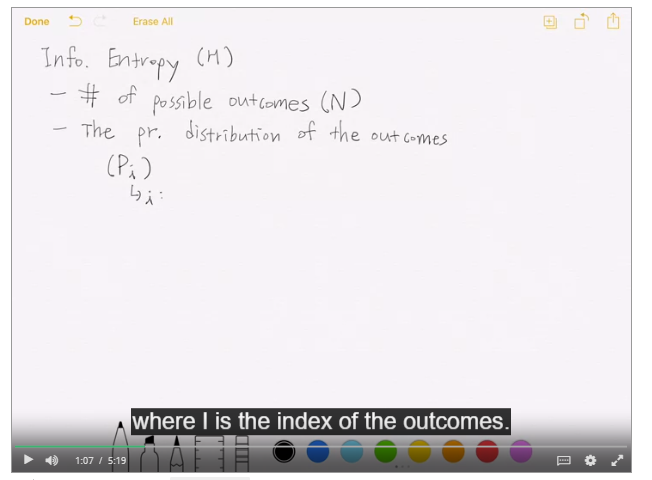 Done Erase All
Info. Entropy (H)
- # of possible outcomes (N)
- The pr. distribution of the outcomes
(Pi)
↳ i :
where I is the index of the outcomes.
1:07 / 5:19